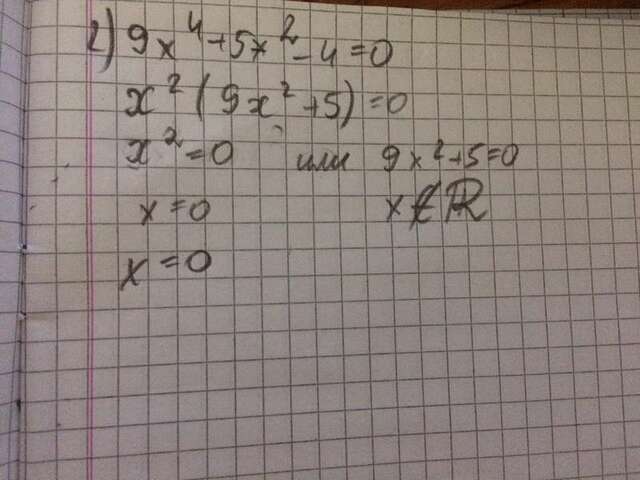 2) 9x⁴+5x²-4=0
x²(9x²+5)=0
x²=0 или 9x²+5=0
x=0 x∉ℝ
x=0